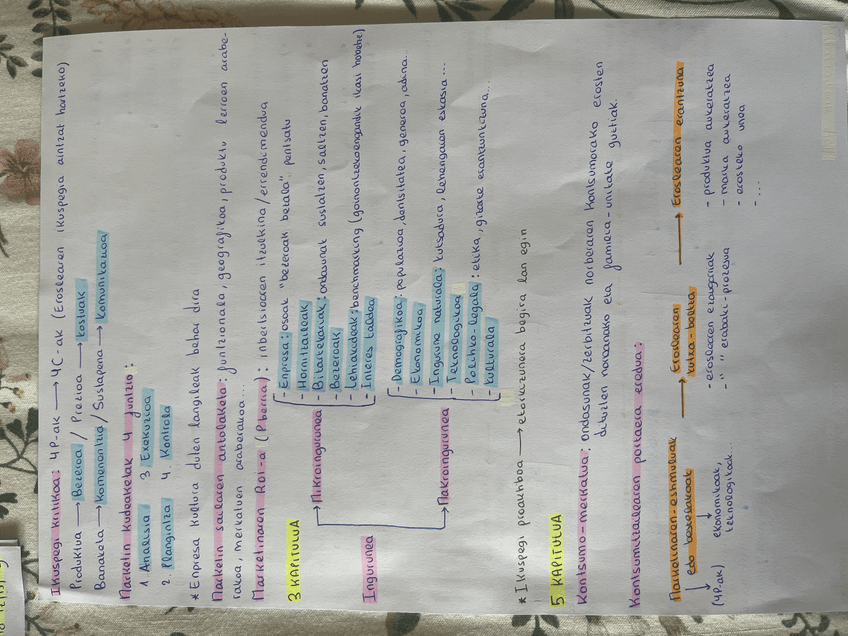 Ikuspegi kritikoa: 4P-ak → 4C-ak (Eroslearen ikuspegia aintzat hartzeko)
Produktua → Bezeroa / Prezioa → Kostuak
Banaketa → Komenentzia / Sustapena → Komunikazioa
Marketin kudeaketak 4 funtzio:
1. Analisia 3. Exekuzioa
2. Plangintza 4. Kontrola
* Enpresa kultura duten langileak behar dira
Marketin sailaren antolaketa: funtzionala, geografikoa, produktu lerroen arabe-
rakoa, merkatuen araberakoa...
Marketinaren ROI-a (P berria): inbertsioaren itzulkina/errendimendua
3 KAPITULUA
Ingurunea
Mikroingurunea
- Enpresa: osoak "bezeroak bezala" pentsatu
- Hornitzaileak
- Bitartekariak: ondasunak sustatzen, saltzen, banatzen
- Bezeroak
- Lehiakideak: benchmarking (goimailetzekoengandik ikasi hobeto)
- Interes taldea
Makroingurunea
- Demografikoa: populazioa, dentsitatea, generoa, adina...
- Ekonomikoa
- Ingurune naturala: kutsadura, lehengaien eskasia...
- Teknologikoa
- Politiko-legala: etika, gizarte erantzunkizuna...
- Kulturala
* Ikuspegi proaktiboa → etorkizunera begira lan egin
5. KAPITULUA
Kontsumo-merkatua: ondasunak/zerbitzuak norberaren kontsumorako erosten
dituzten norbanako eta familia-unitate guztiak.
Kontsumitzailearen portaera eredua:
Marketinaren-estimuluak → Eroslearen → Eroslearen erantzuna
edo bestelakoak kutxa-beltza
(4P-ak) ekonomikoak,
teknologikoak...
- eroslearen ezaugarriak
- " " erabaki-prozesua
- produktua aukeratzea
- marka aukeratzea
- erosteko unea
- ...